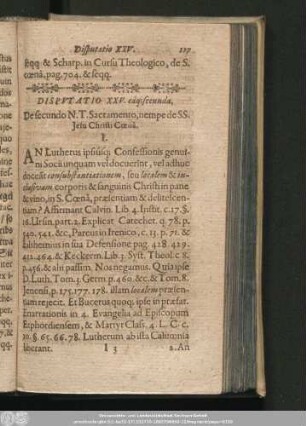 Disputatio XXV. 117
seqq. & Scharp. in Cursu Theologico, de S.
cœnâ, pag. 704. & seqq.
DISPVTATIO XXV. eáq; secunda,
De secundo N. T. Sacramento, nempe de SS.
Jesu Christi Cœnâ.
I.
AN Lutherus ipsiusq; Confessionis genui-
ni Socii unquam vel docuerint, vel adhuc
doceãt consubstantiationem, seu localem & in-
clusivam corporis & sanguinis Christi in pane
& vino, in S. Cœnâ, præsentiam & delitescen-
tiam? Affirmant Calvin. Lib. 4. Instit. c. 17. §.
16. Ursin. part. 2. Explicat. Catechet. q. 78. p.
540. 541. &c. Pareus in Irenico, c. 13. p. 71. &
in sua Defensione pag. 428. 429.
432. 464. & Keckerm. Lib. 3. Syst. Theol. c. 8.
p. 456. & alii passim. Nos negamus. Quia ipse
D. Luth. Tom. 3. Germ. p. 460. &c. & Tom. 8.
Jenensi, p. 175. 177. 178. illam localem præsen-
tiam rejecit. Et Bucerus quoq; ipse in præfat.
Enarrationis in 4. Evangelia ad Episcopum
& Martyr Class. 4. L. C. c.
10. §. 65. 66. 78. Lutherum ab ista Calumnia
liberant.
I 3 2. An